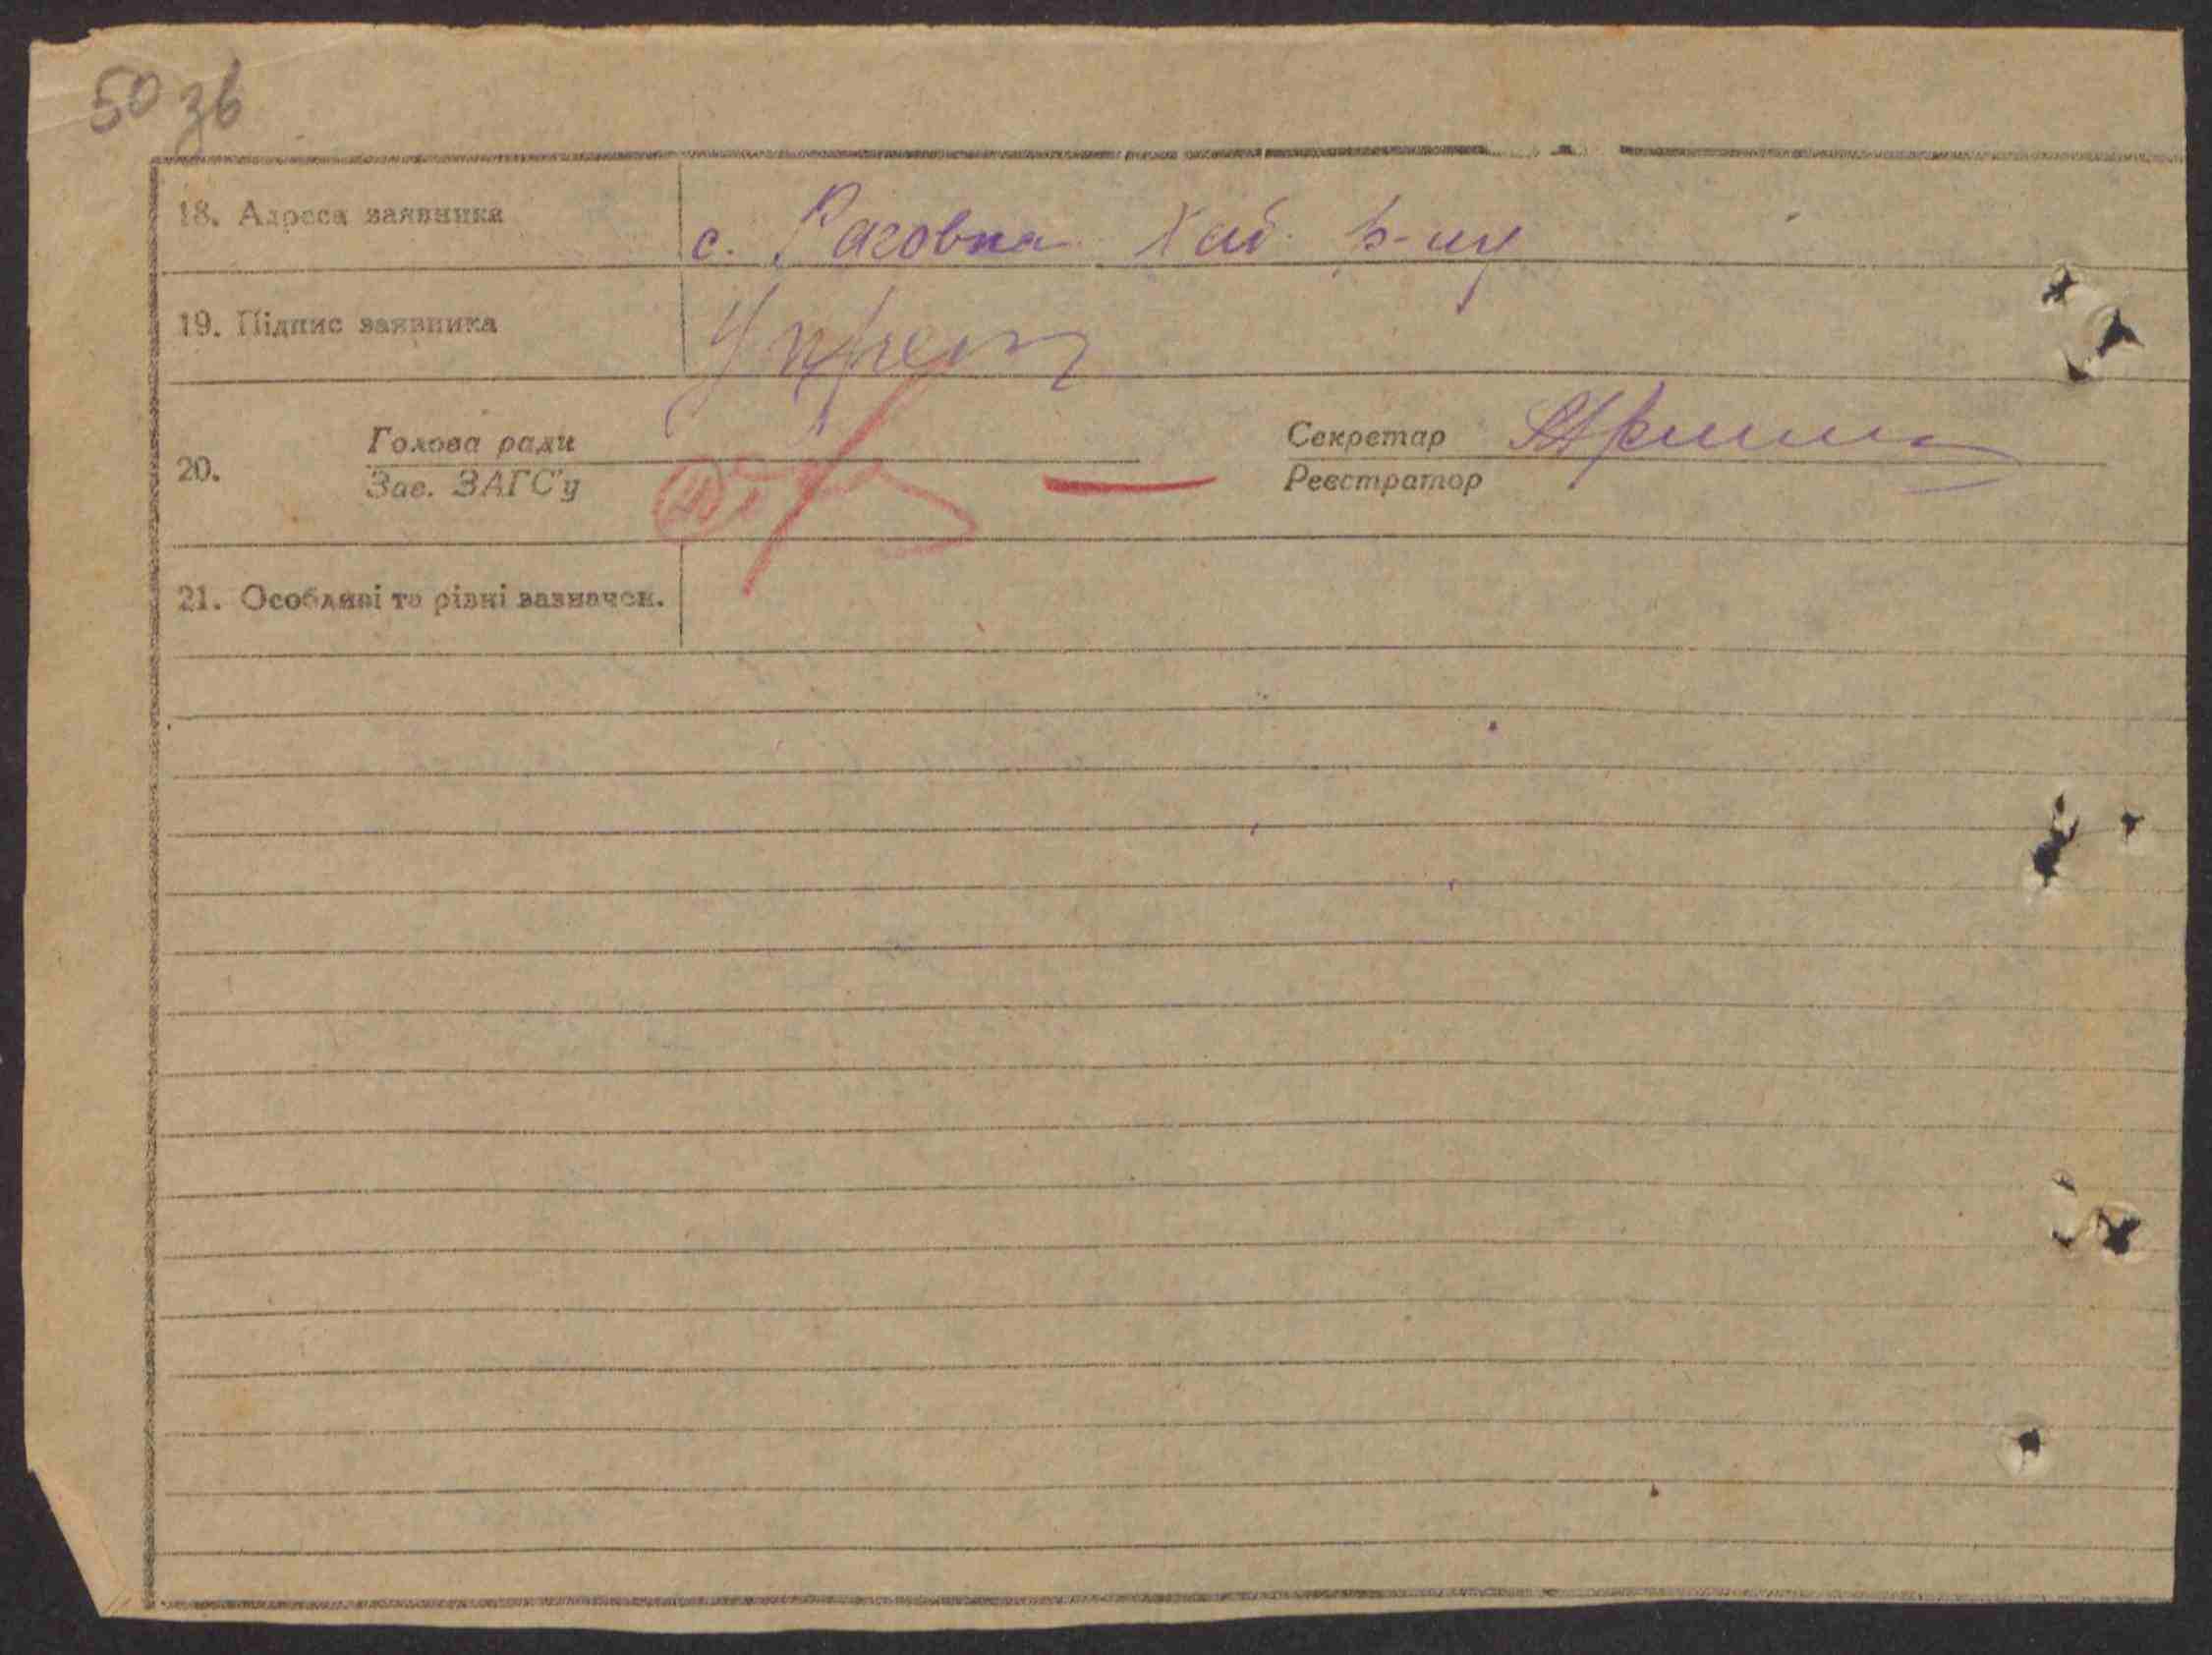 50 зв
18. Адреса заявника с. Расовка Хаб. р-ну
19. Підпис заявника
Голова ради Секретар
20.
Зав. ЗАГС'у Реєстратор
21. Особливі та різні зазначен.